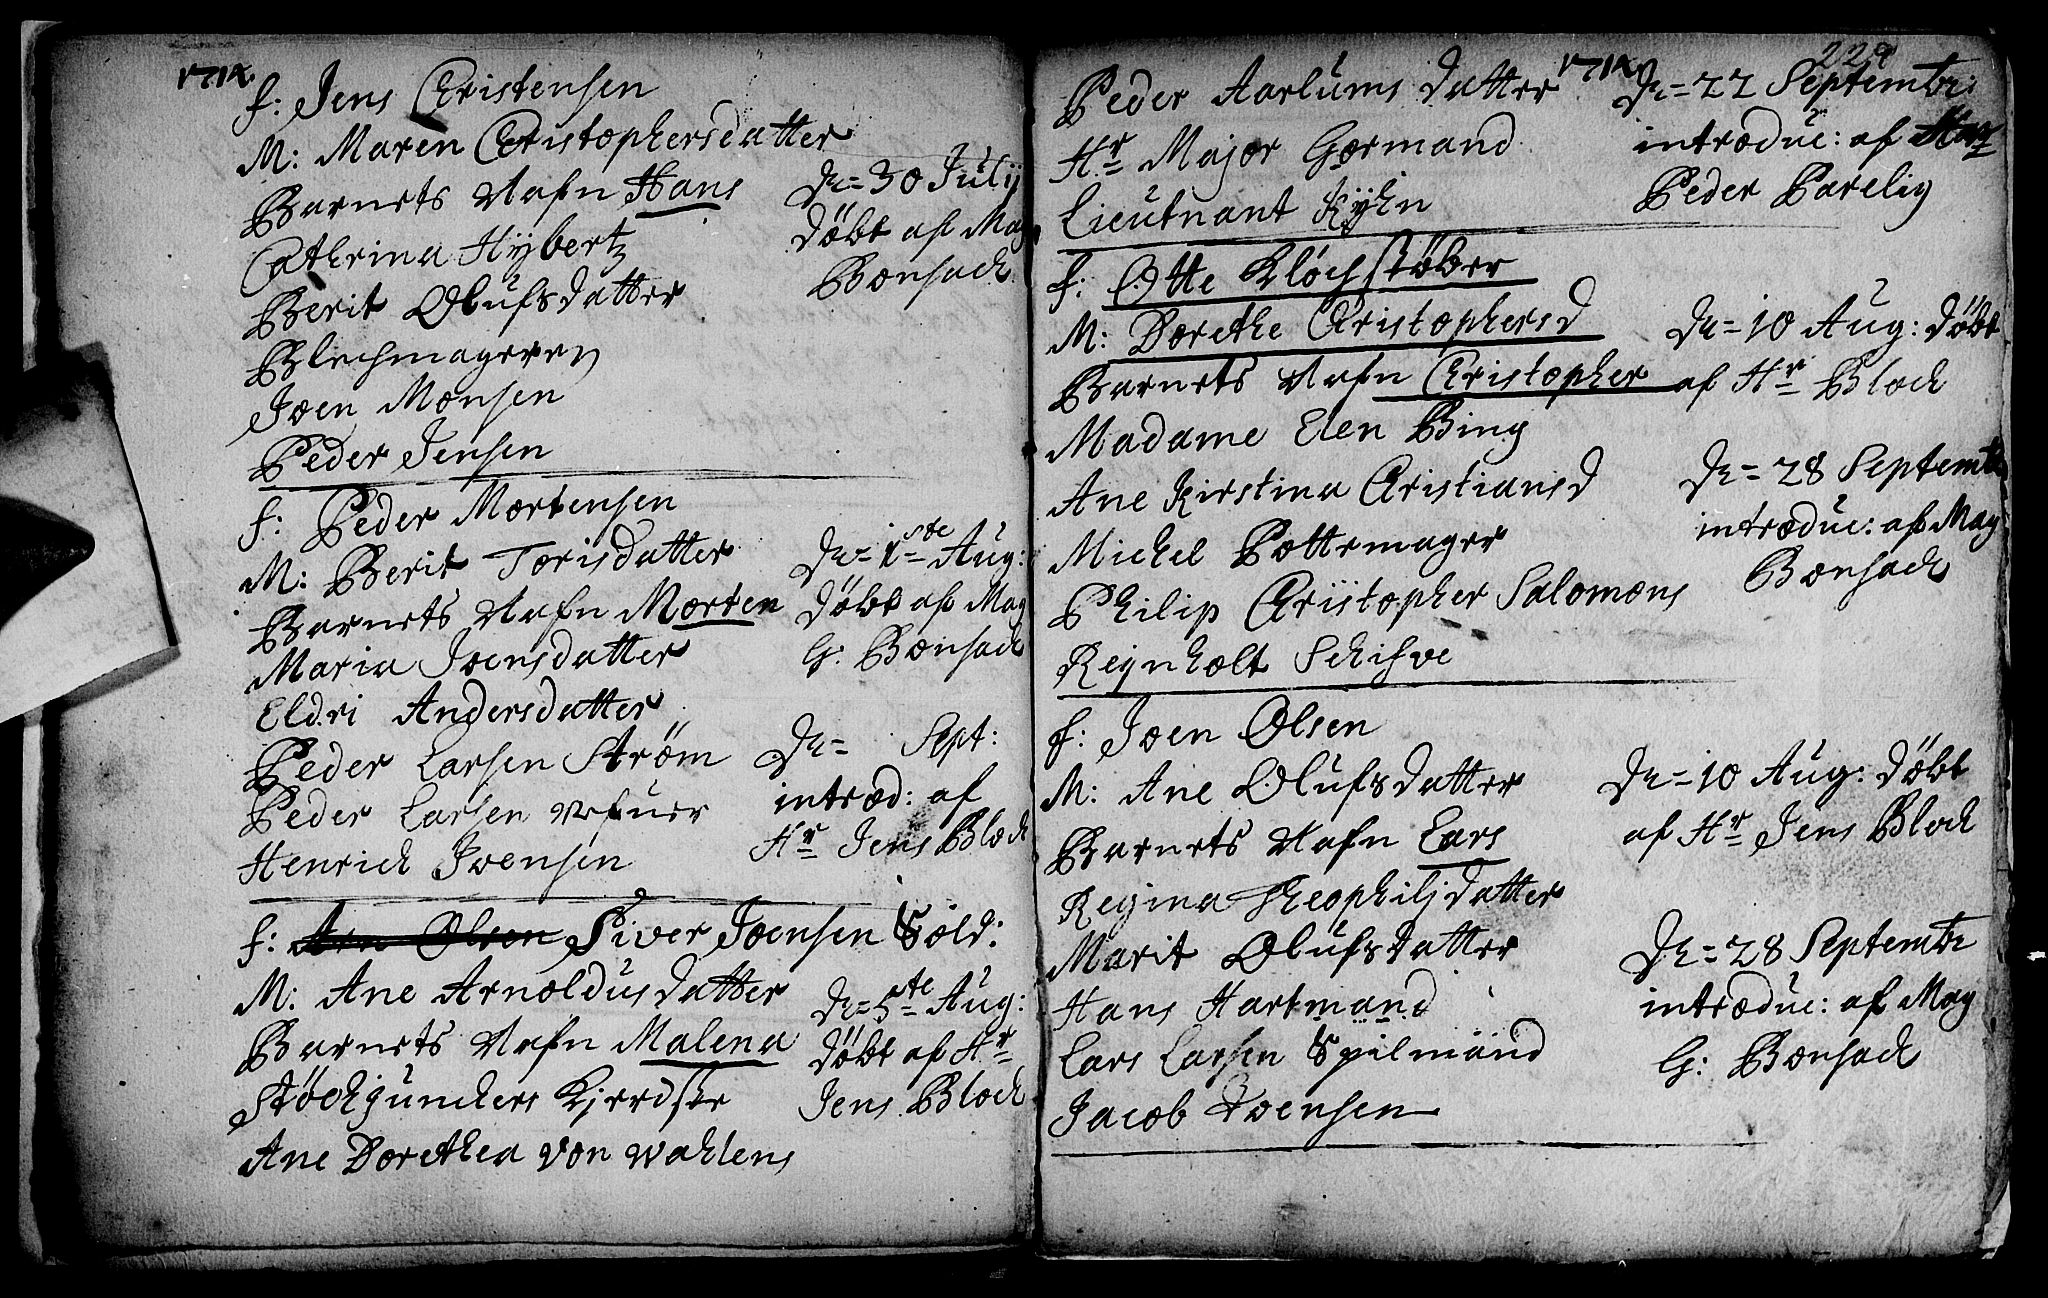 1714
f: Jens Christensen
M: Maren Christophersdatter
Barnets Nafn Hans
Cathrina Hybertz
Berit Olufsdatter
Blechmageren
Joen Monsen
Peder Jensen
D= 30 July
döbt af Mag
Bonsach
f: Peder Mortensen
M: Berit Torisdatter
Barnets Nafn Morten
Maria Joensdatter
Eldri Andersdatter
Peder Larsen Ström
Peder Larsen
Henrich Joensen
D= 1ste Aug:
döbt af Mag
G: Bonsach
D= Sept:
introd: af
Hr Jens Bloch
f: Arn Olsen Siver Joensen Sold:
M: Ane Arnoldusdatter
Barnets Nafn Malena
Stöchjunchers Kjerdster
Ane Dorethea von Wahlens
D= 5te Aug:
döbt af Hr
Jens Bloch
1714
229
Peder Aarlums datter
Hr Major Gormand
Lieutnant Kyhn
D= 22 Septembr:
introduc: af Hr
Peder Parelig
f: Otte Klochstöber
M: Dorethe Christophersd
Barnets Nafn Christopher
Madame Elen Bing
Ane Kirstina Christiansd
Michel Pottemager
Philip Christopher Salomons
Reynholt Schifve
D= 10 Aug: döbt
af Hr Bloch
D= 28 Septemb
introduc: af Mag
Bonsach
f: Joen Olsen
M: Ane Olufsdatter
Barnets Nafn Lars
Regina Theophilj datter
Marit Olufsdatter
Hans Hartmand
Lars Larsen Spilmand
Jacob Joensen
D= 10 Aug: döbt
af Hr Jens Bloch
D= 28 Septembr
introduc: af Mag
G: Bonsach